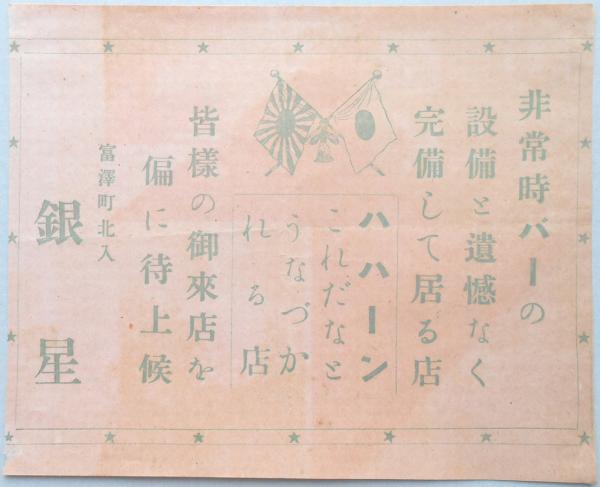 非常時バーの
設備と遺憾なく
完備して居る店
ハハーン
これだなと
うなづか
れる店
皆様の御來店を
偏に待上候
富澤町北入
銀星